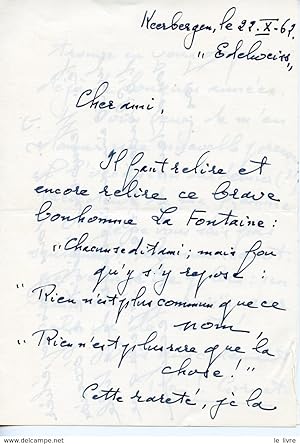 Keerbergen, le 22-X-67.
"Edelweiss"
Cher ami,
Il faut relire et
encore relire ce brave
bonhomme La Fontaine :
"Chacun se dit ami ; mais fou
qui y s'y repose :
"Rien n'est plus commun que ce
nom,
"Rien n'est plus rare que la
chose !"
Cette rareté, je la
© le livre